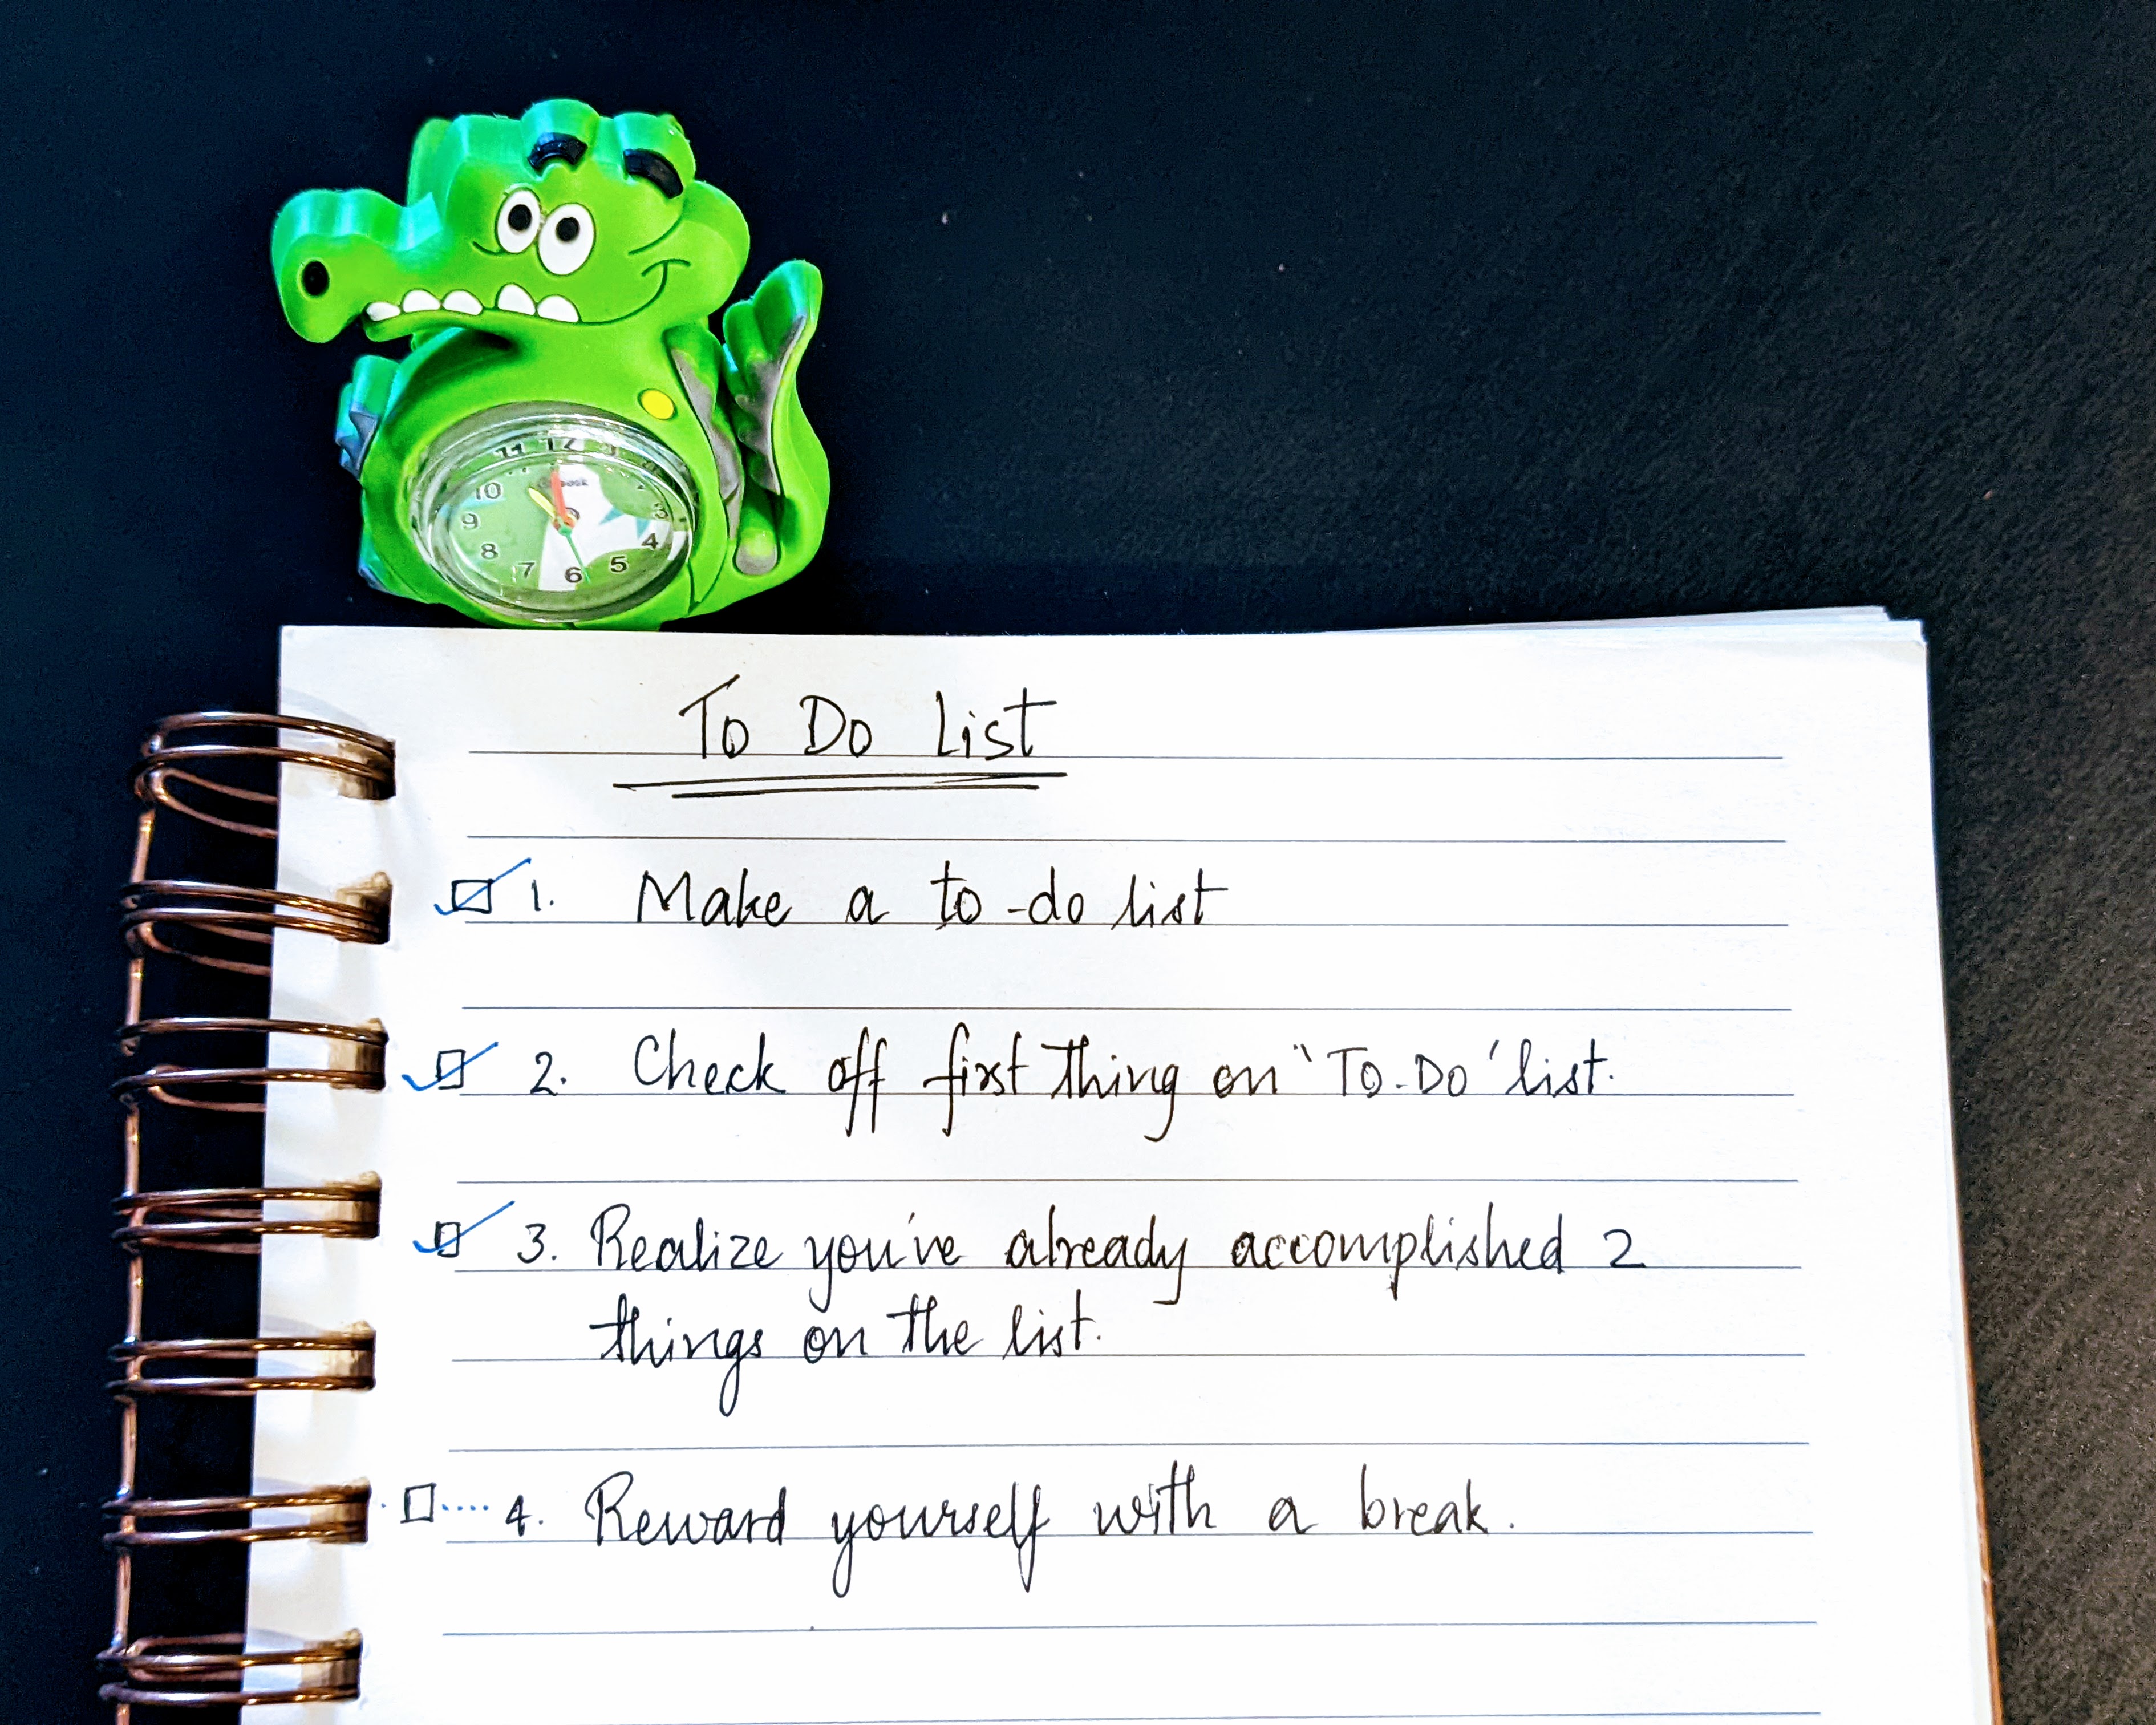 11 12 1
10
9 3
8 4
7 6 5
To Do List
1. Make a to-do list
2. Check off first thing on "To-Do' list.
3. Realize you've already accomplished 2
things on the list.
4. Reward yourself with a break.